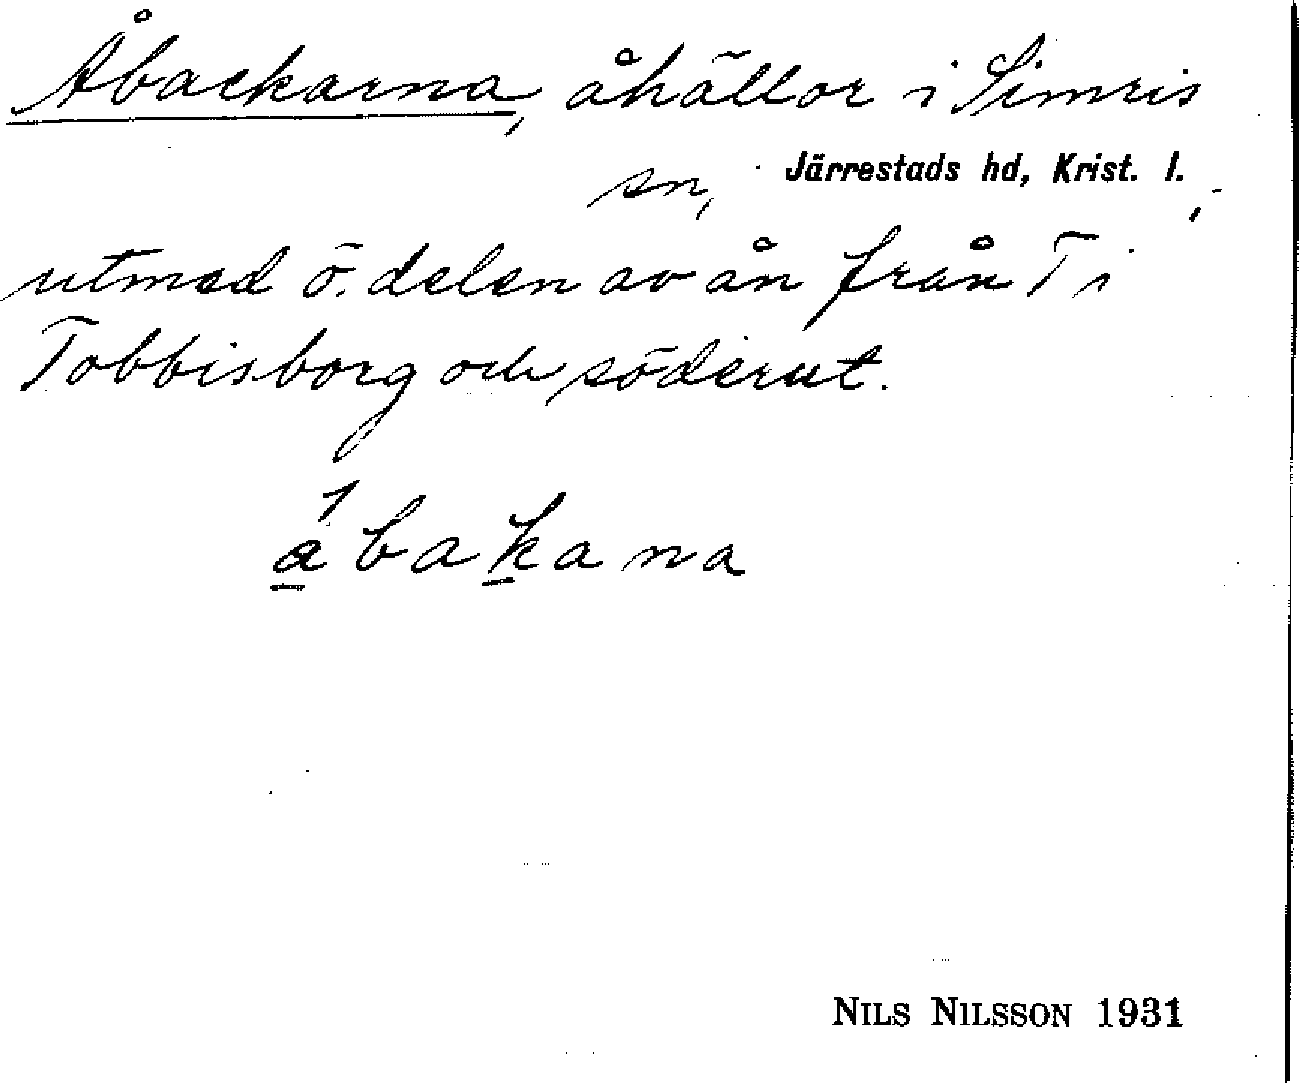 Åbackarna, åhällor i Simris
sn, Järrestads hd, Krist. l.,
utmed ö. delen av ån från T i
Tobbisborg och söderut.
a̲´bak̲ana
NILS NILSSON 1931